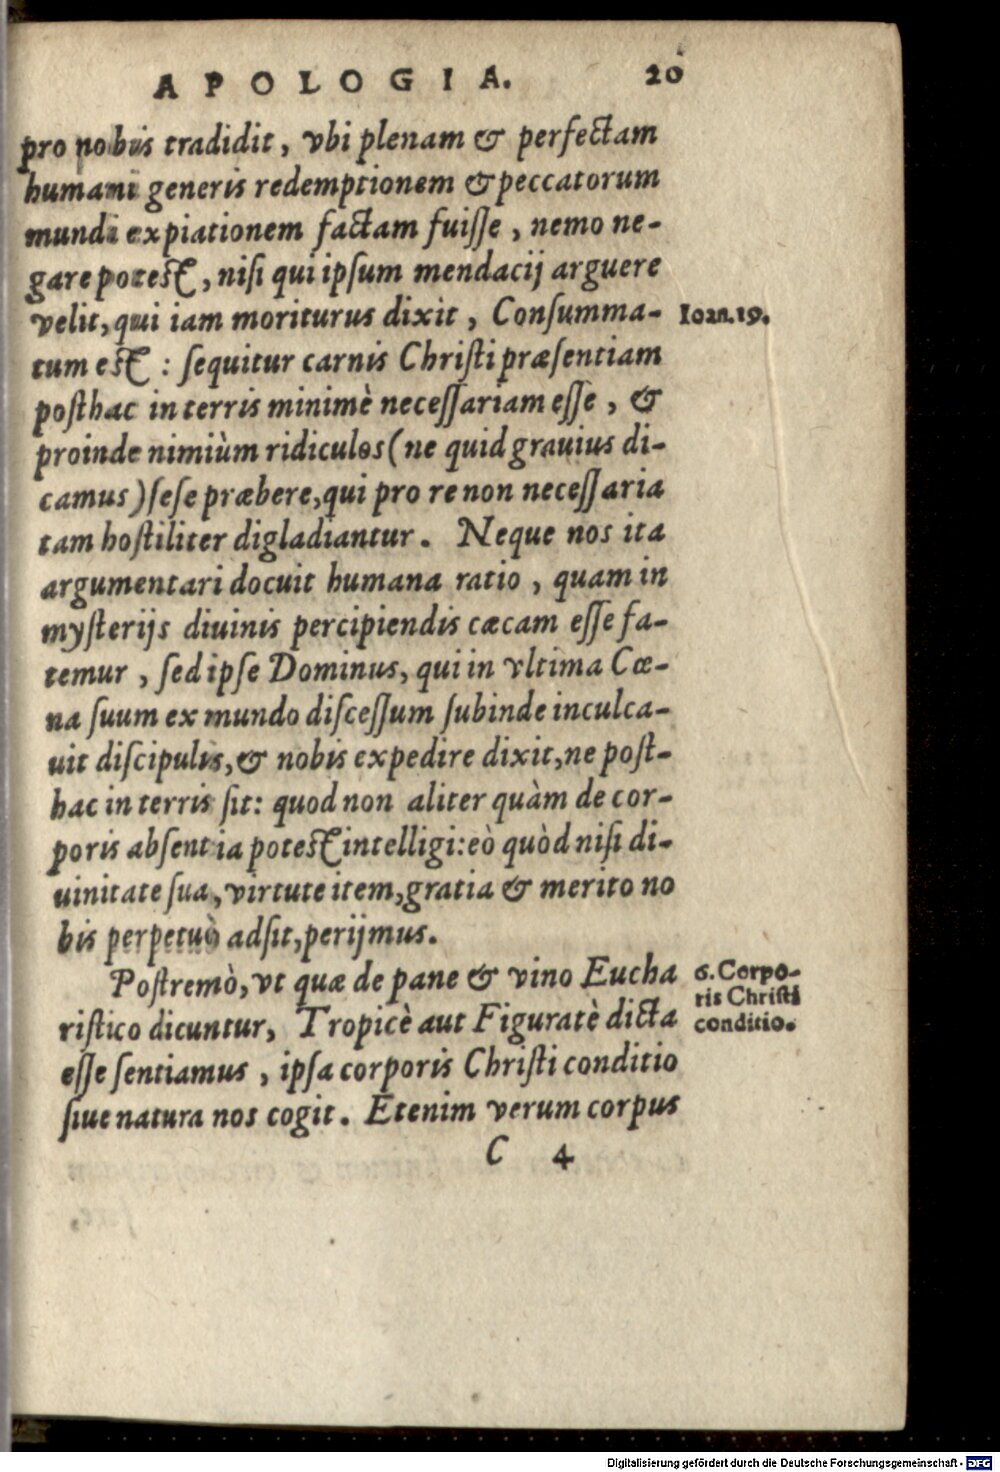 APOLOGIA. 20
pro nobis tradidit, vbi plenam & perfectam
humani generis redemptionem & peccatorum
mundi expiationem factam fuisse, nemo ne-
gare potest, nisi qui ipsum mendacij arguere
velit, qui iam moriturus dixit, Consumma-
Ioan. 19.
tum est: sequitur carnis Christi præsentiam
posthac in terris minimè necessariam esse, &
proinde nimiùm ridiculos (ne quid grauius di-
camus) sese præbere, qui pro re non necessaria
tam hostiliter digladiantur. Neque nos ita
argumentari docuit humana ratio, quam in
mysterijs diuinis percipiendis cæcam esse fa-
temur, sed ipse Dominus, qui in vltima Cœ-
na suum ex mundo discessum subinde inculca-
uit discipulis, & nobis expedire dixit, ne post-
hac in terris sit: quod non aliter quàm de cor-
poris absentia potest intelligi: eò quòd nisi di-
uinitate sua, virtute item, gratia & merito no
bis perpetuò adsit, perijmus.
Postremò, vt quæ de pane & vino Eucha
ristico dicuntur, Tropicè aut Figuratè dicta
esse sentiamus, ipsa corporis Christi conditio
siue natura nos cogit. Etenim verum corpus
6. Corpo-
ris Christi
conditio.
C 4
Digitalisierung gefördert durch die Deutsche Forschungsgemeinschaft - DFG